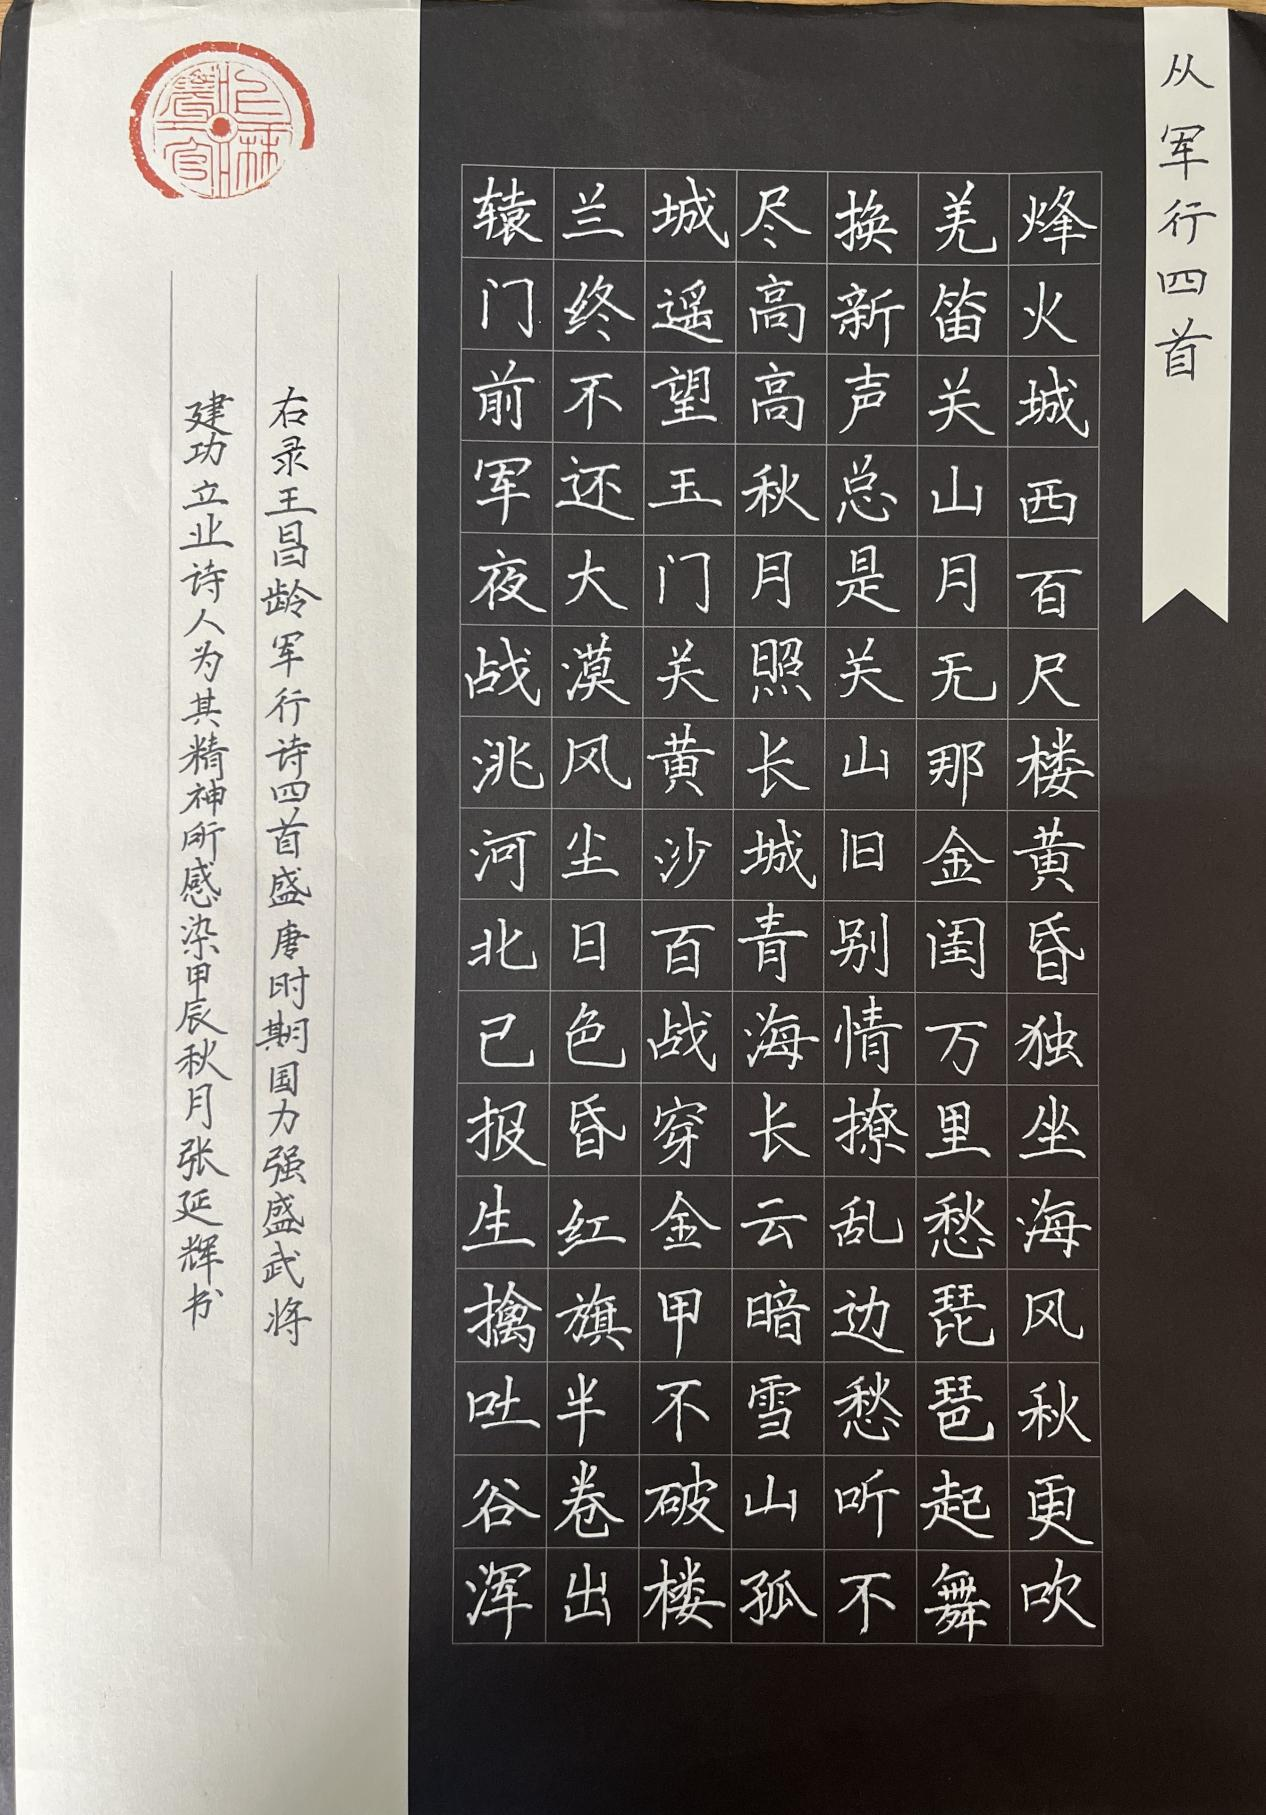 从军行四首
烽火城西百尺楼黄昏独坐海风秋更吹
羌笛关山月无那金闺万里愁琵琶起舞
换新声总是关山旧别情撩乱边愁听不
尽高高秋月照长城青海长云暗雪山孤
城遥望玉门关黄沙百战穿金甲不破楼
兰终不还大漠风尘日色昏红旗半卷出
辕门前军夜战洮河北已报生擒吐谷浑
右录王昌龄军行诗四首盛唐时期国力强盛武将
建功立业诗人为其精神所感染甲辰秋月张延辉书